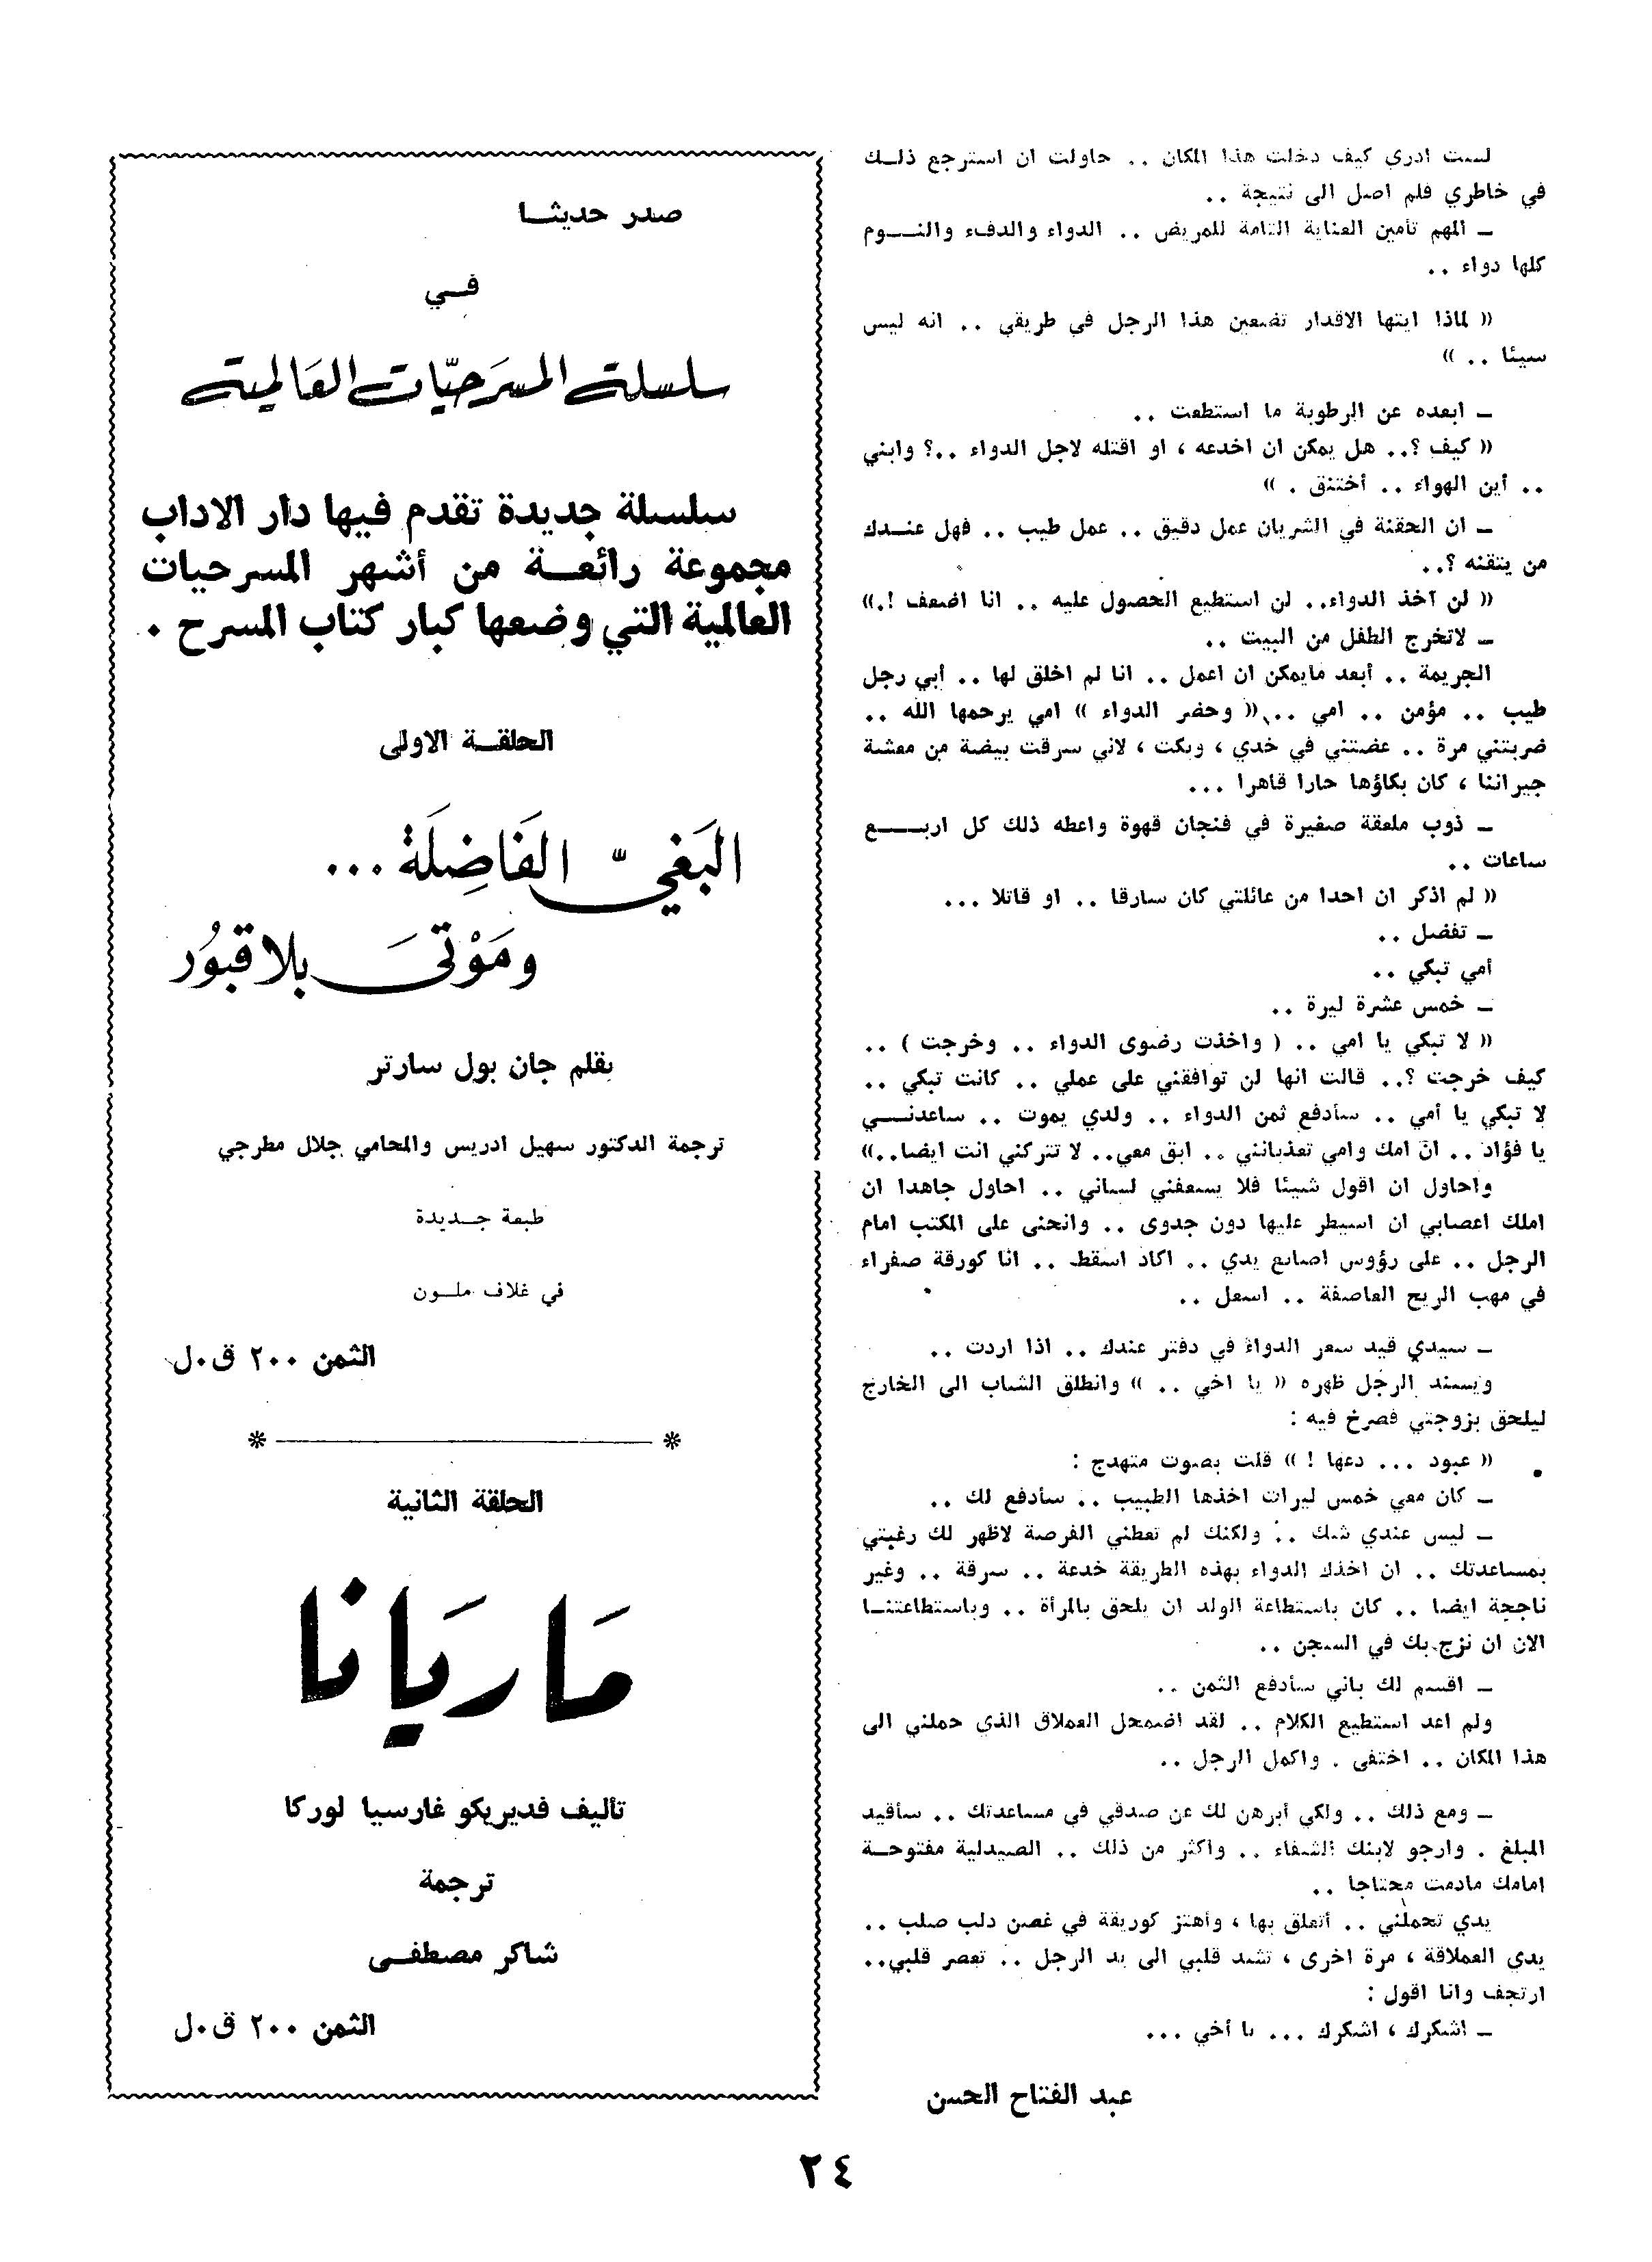 لست ادري كيف دخلت هذا المكان .. حاولت ان استرجع ذلـك
في خاطري فلم اصل الى نتيجة ..
ـ المهم تأمين العناية التامة للمريض .. الدواء والدفء والنــوم
كلها دواء ..
« لماذا ايتها الاقدار تضعين هذا الرجل في طريقي .. انه ليس
سيئا .. »
ـ ابعده عن الرطوبة ما استطعت ..
« كيف ؟.. هل يمكن ان اخدعه ، او اقتله لاجل الدواء ..؟ وابني
.. أين الهواء .. أختنق . »
ـ ان الحقنة في الشريان عمل دقيق .. عمل طيب .. فهل عنـدك
من يتقنه ؟..
« لن آخذ الدواء.. لن استطيع الحصول عليه .. انا اضعف !.»
ـ لاتخرج الطفل من البيت ..
الجريمة .. أبعد مايمكن ان اعمل .. انا لم اخلق لها .. أبي رجل
طيب .. مؤمن .. امي ..« وحضر الدواء » امي يرحمها الله ..
ضربتني مرة .. عضتني في خدي ، وبكت ، لاني سرقت بيضة من مقشة
جيراننا ، كان بكاؤها حارا قاهرا ...
ـ ذوب ملعقة صغيرة في فنجان قهوة واعطه ذلك كل اربــع
ساعات ..
« لم اذكر ان احدا من عائلتي كان سارقا .. او قاتلا ...
ـ تفضل ..
أمي تبكي ..
ـ خمس عشرة ليرة ..
« لا تبكي يا امي .. ( واخذت رضوى الدواء .. وخرجت ) ..
كيف خرجت ؟.. قالت انها لن توافقني على عملي .. كانت تبكي ..
لا تبكي يا أمي .. سأدفع ثمن الدواء .. ولدي يموت .. ساعدنــي
يا فؤاد .. ان امك وامي تعذبانني .. ابق معي.. لا تتركني انت ايضا..»
واحاول ان اقول شيئا فلا يسعفني لساني .. احاول جاهدا ان
املك اعصابي ان اسيطر عليها دون جدوى .. وانحنى على المكتب امام
الرجل .. على رؤوس اصابع يدي .. اكاد اسقط .. انا كورقة صفراء
في مهب الريح العاصفة .. اسعل ..
ـ سيدي قيد سعر الدواء في دفتر عندك .. اذا اردت ..
ويسند الرجل ظهره « يا اخي .. » وانطلق الشاب الى الخارج
ليلحق بزوجتي فصرخ فيه :
« عبود ... دعها ! » قلت بصوت متهدج :
ـ كان معي خمس ليرات اخذها الطبيب .. سأدفع لك ..
ـ ليس عندي شك .. ولكنك لم تعطني الفرصة لاظهر لك رغبتي
بمساعدتك .. ان اخذك الدواء بهذه الطريقة خدعة .. سرقة .. وغير
ناجحة ايضا .. كان باستطاعة الولد ان يلحق بالمرأة .. وباستطاعتنـا
الان ان نزج بك في السجن ..
ـ اقسم لك باني سأدفع الثمن ..
ولم اعد استطيع الكلام .. لقد اضمحل العملاق الذي حملني الى
هذا المكان .. اختفى . واكمل الرجل ..
ـ ومع ذلك .. ولكي أبرهن لك عن صدقي في مساعدتك .. سأقيد
المبلغ . وارجو لابنك الشفاء .. واكثر من ذلك .. الصيدلية مفتوحـة
امامك مادمت محتاجا ..
يدي تحملني .. أتعلق بها ، وأهتز كوريقة في غصن دلب صلب ..
يدي العملاقة ، مرة اخرى ، تشد قلبي الى يد الرجل .. تعصر قلبي..
ارتجف وانا اقول :
ـ اشكرك ، اشكرك ... يا أخي ...
عبد الفتاح الحسن
صدر حديثـا
فـي
سلسلة المسرَحيّات العَالمية
سلسلة جديدة تقدم فيها دار الاداب
مجموعة رائعـة من أشهر المسرحيات
العالمية التي وضعها كبار كتاب المسرح .
الحلقـة الاولى
البَغيّ الفَاضِلَة ...
ومَوْتىَ بلا قبُور
بقلم جان بول سارتر
ترجمة الدكتور سهيل ادريس والمحامي جلال مطرجي
طبعة جـديدة
في غلاف ملـون
الثمن ٢٠٠ ق.ل
* ـــــــــــــــــ *
الحلقة الثانية
مَاريَانا
تأليف فديريكو غارسيا لوركا
ترجمة
شاكر مصطفـى
الثمن ٢٠٠ ق.ل
٢٤